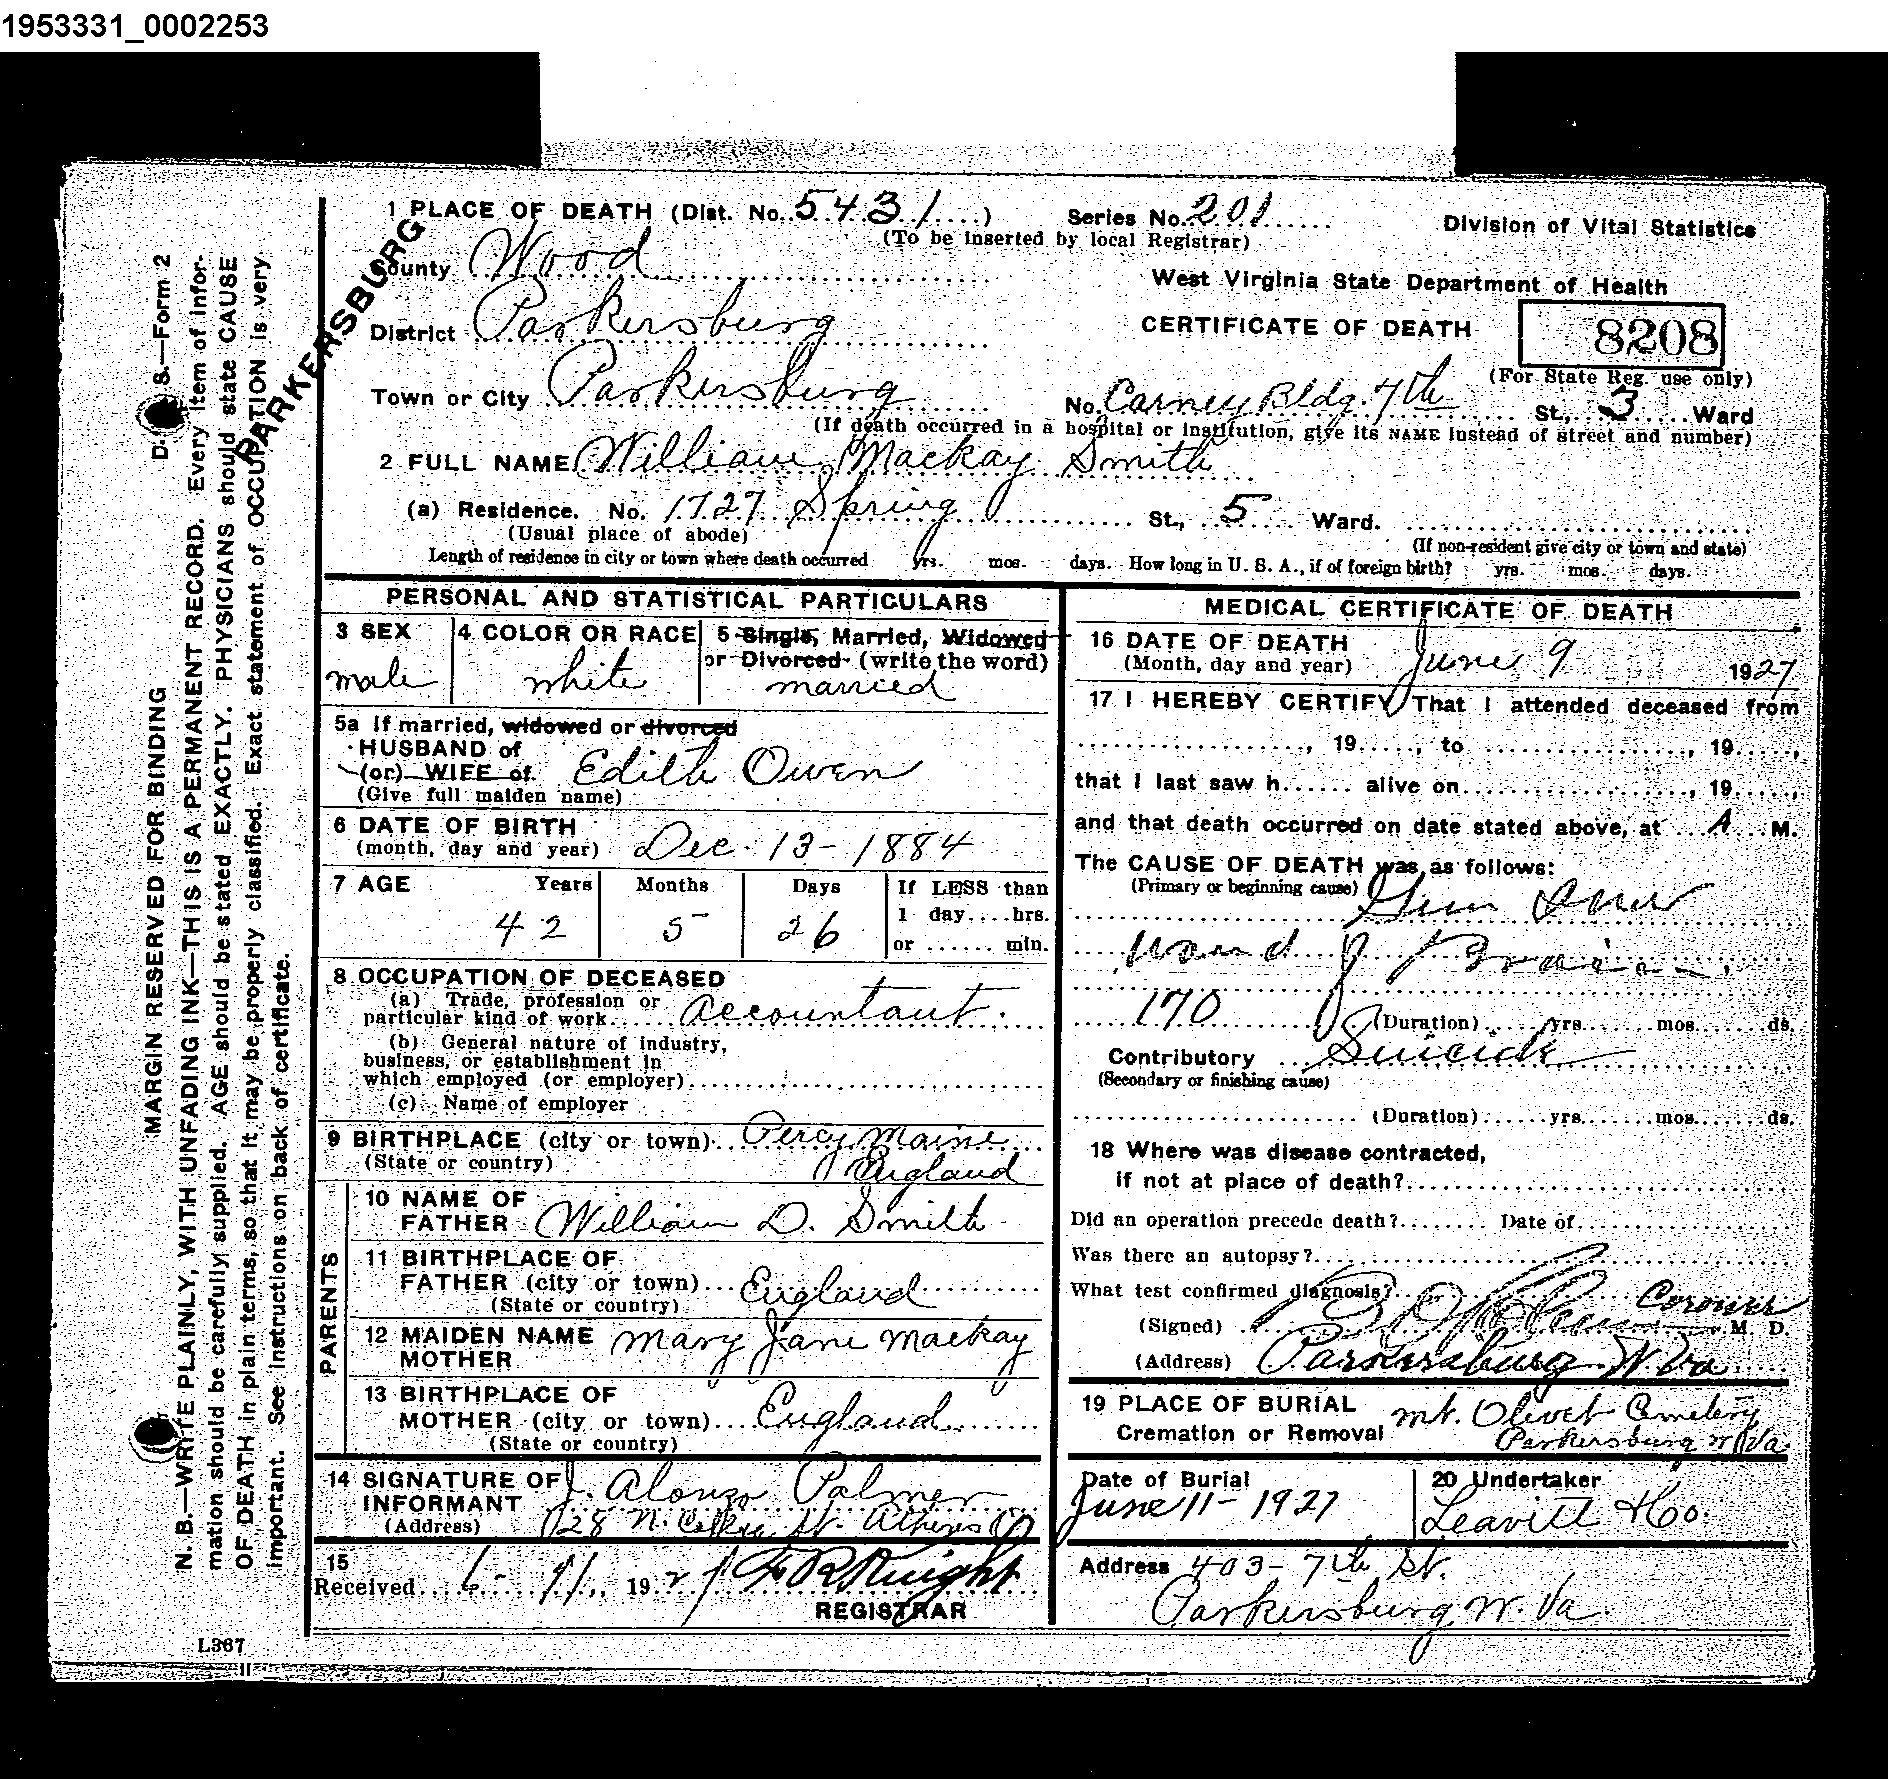 1953331_0002253
1 PLACE OF DEATH (Dist. No. 5431) Series No. 201 Division of Vital Statistics
(To be inserted by local Registrar)
County Wood
West Virginia State Department of Health
PARKERSBURG
District Parkersburg
CERTIFICATE OF DEATH 8208
(For State Reg. use only)
Town or City Parkersburg No. Carney Bldg. 7th St., 3 Ward
(If death occurred in a hospital or institution, give its NAME instead of street and number)
2 FULL NAME William Mackay Smith
(a) Residence. No. 1727 Spring St., 5 Ward.
(Usual place of abode) (If non-resident give city or town and state)
Length of residence in city or town where death occurred yrs. mos. days. How long in U. S. A., if of foreign birth? yrs. mos. days.
PERSONAL AND STATISTICAL PARTICULARS
3 SEX
male
4 COLOR OR RACE
white
5 Single, Married, Widowed
or Divorced (write the word)
married
5a If married, widowed or divorced
HUSBAND of
(or) WIFE of Edith Owen
(Give full maiden name)
6 DATE OF BIRTH
(month, day and year) Dec. 13 - 1884
7 AGE Years Months Days If LESS than
1 day....hrs.
42 5 26
or ...... min.
8 OCCUPATION OF DECEASED
(a) Trade, profession or
particular kind of work Accountant.
(b) General nature of industry,
business, or establishment in
which employed (or employer)
(c) Name of employer
9 BIRTHPLACE (city or town) Percy Maine
(State or country) England
PARENTS
10 NAME OF
FATHER William D. Smith
11 BIRTHPLACE OF
FATHER (city or town) England
(State or country)
12 MAIDEN NAME Mary Jane Mackay
MOTHER
13 BIRTHPLACE OF
MOTHER (city or town) England
(State or country)
14 SIGNATURE OF J. Alonzo Palmer
INFORMANT
(Address) 128 N. St. Athens O
15
Received 6 - 11, 1927 REGISTRAR
MEDICAL CERTIFICATE OF DEATH
16 DATE OF DEATH
(Month, day and year) June 9 1927
17 I HEREBY CERTIFY That I attended deceased from
, 19....., to , 19.....,
that I last saw h...... alive on , 19.....,
and that death occurred on date stated above, at A M.
The CAUSE OF DEATH was as follows:
(Primary or beginning cause) Gun Shot
wound of Brain
170 (Duration) yrs. mos. ds.
Contributory Suicide
(Secondary or finishing cause)
(Duration) yrs. mos. ds.
18 Where was disease contracted,
if not at place of death?
Did an operation precede death? Date of
Was there an autopsy?
What test confirmed diagnosis?
(Signed) Coroner M. D.
(Address) Parkersburg W. Va
19 PLACE OF BURIAL Mt. Olivet Cemetery
Cremation or Removal Parkersburg W Va
Date of Burial
June 11 - 1927
20 Undertaker
Leavitt & Co.
Address 403 - 7th St.
Parkersburg W. Va.
D. S.—Form 2
MARGIN RESERVED FOR BINDING
N. B.—WRITE PLAINLY, WITH UNFADING INK—THIS IS A PERMANENT RECORD. Every item of infor-
mation should be carefully supplied. AGE should be stated EXACTLY. PHYSICIANS should state CAUSE
OF DEATH in plain terms, so that it may be properly classified. Exact statement of OCCUPATION is very
important. See instructions on back of certificate.
L367